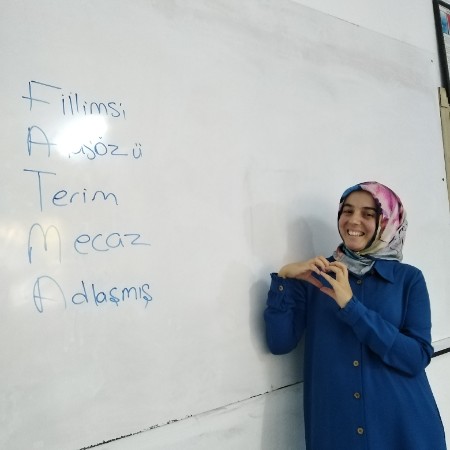 Fiilimsi
Atasözü
Terim
Mecaz
Adlaşmış